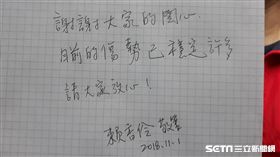 謝謝大家的関心
目前的傷勢已穩定許多
請大家放心！
賴香伶 敬筆
2018.11.1
SETN 三立新聞網